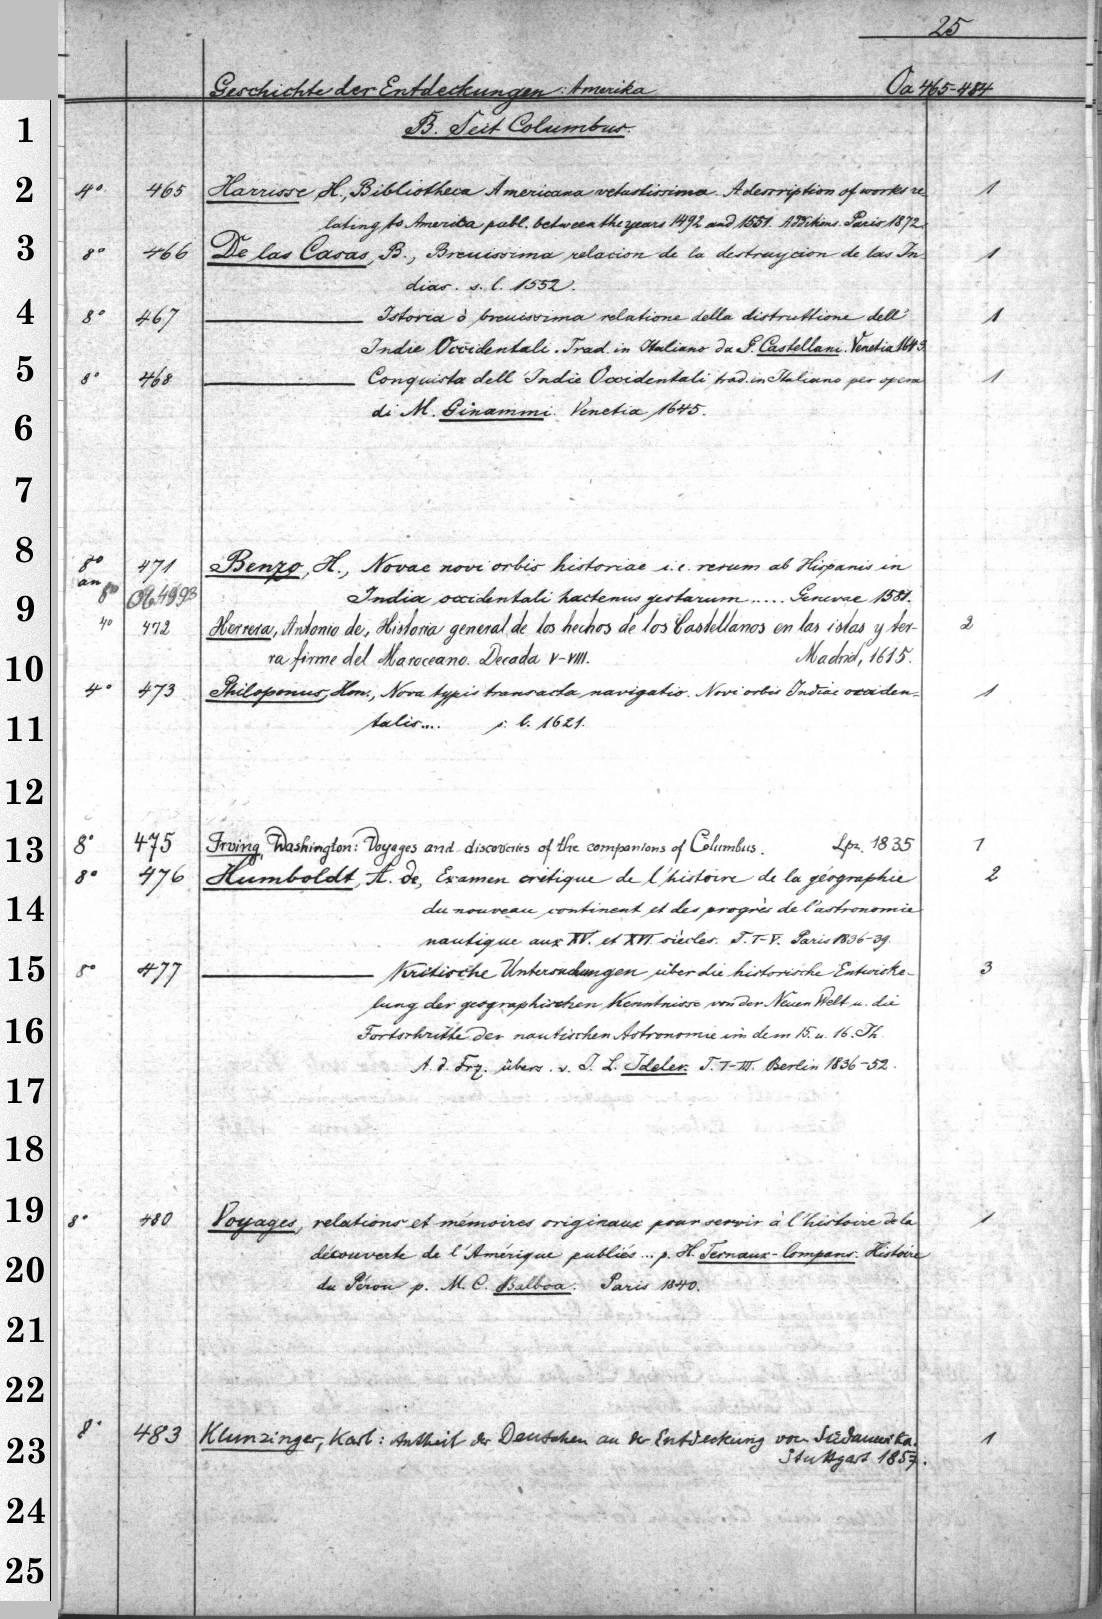 25
Geschichte der Entdeckungen: Amerika Oa 465-484
1 B. Seit Columbus.
2 4o. 465 Harrisse, H., Bibliotheca Americana vetustissima. A description of works re 1
lating to America publ. between the years 1492 and 1551. Additions. Paris 1872.
3 8o 466 De las Casas, B., Breuissima relacion de la destruycion de las In 1
dias. s. l. 1552.
4 8o 467 ——— Istoria ò breuissima relatione della distruttione dell' 1
Indie Occidentali. Trad. in Italiano da G. Castellani. Venetia 1643
5 8o 468 ——— Conquista dell' Indie Occidentali trad. in Italiano per opera 1
6 di M. Ginammi. Venetia 1645.
7
8 8o 471 Benzo, H., Novae novi orbis historiae i.e. rerum ab Hispanis in
an 8o Ob 4993 India occidentali hactenus gestarum ..... Genevae 1581.
9 4o 472 Herrera, Antonio de, Historia general de los hechos de los Castellanos en las islas y ter- 2
10 ra firme del Maroceano. Decada V-VIII. Madrid, 1615.
4o 473 Philoponus, Hon., Nova typis transacta navigatio. Novi orbis Indiae occiden- 1
11 talis.... s. l. 1621.
12
13 8o 475 Irving, Washington: Voyages and discoveries of the companions of Columbus. Lpz. 1835 1
8o 476 Humboldt, A. de, Examen critique de l'histoire de la géographie 2
14 du nouveau continent et des progrès de l'astronomie
nautique aux XV. et XVI siècles. T. I-V. Paris 1836-39.
15 8o 477 ——— Kritische Untersuchungen über die historische Entwicke- 3
lung der geographischen Kenntnisse von der Neuen Welt u. die
16 Fortschritte der nautischen Astronomie in dem 15. u. 16. Jh.
A. d. Frz. übers. v. J. L. Ideler. T. I-III. Berlin 1836-52.
17
18
19 8o 480 Voyages, relations et mémoires originaux pour servir à l'histoire de la 1
découverte de l'Amérique publiés... p. H. Ternaux-Compans. Histoire
20 du Pérou p. M. C. Balboa. Paris 1840.
21
22
23 8o 483 Klunzinger, Karl: Antheil der Deutschen an der Entdeckung von Südamerika. 1
Stuttgart 1857.
24
25